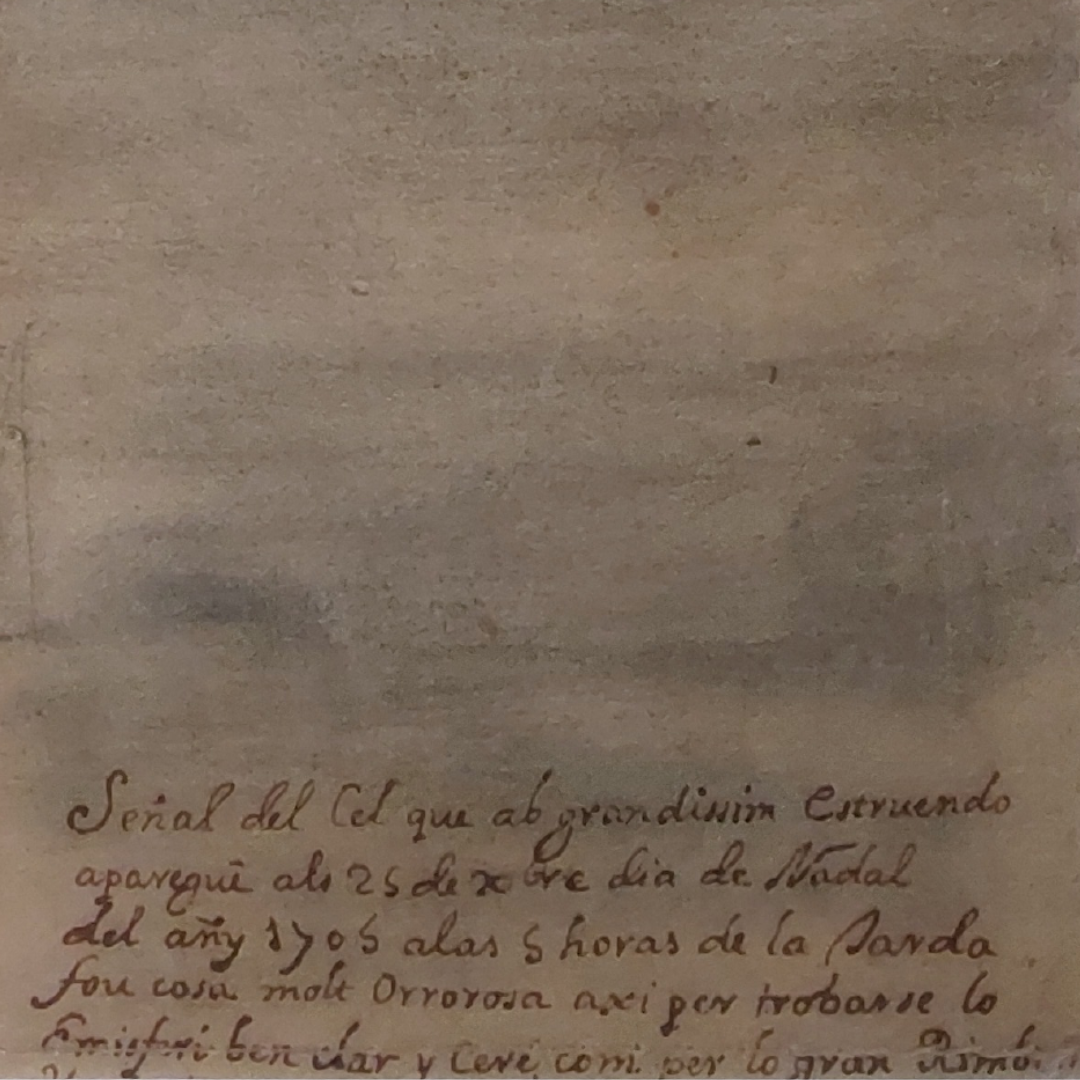 Señal del Cel que ab grandissim Estruendo
aparegué als 25 de xbre dia de Nadal
del añy 1705 alas 5 horas de la Tarda
fou cosa molt Orrorosa axi per trobarse lo
Emisferi ben clar y Ceré com per lo gran